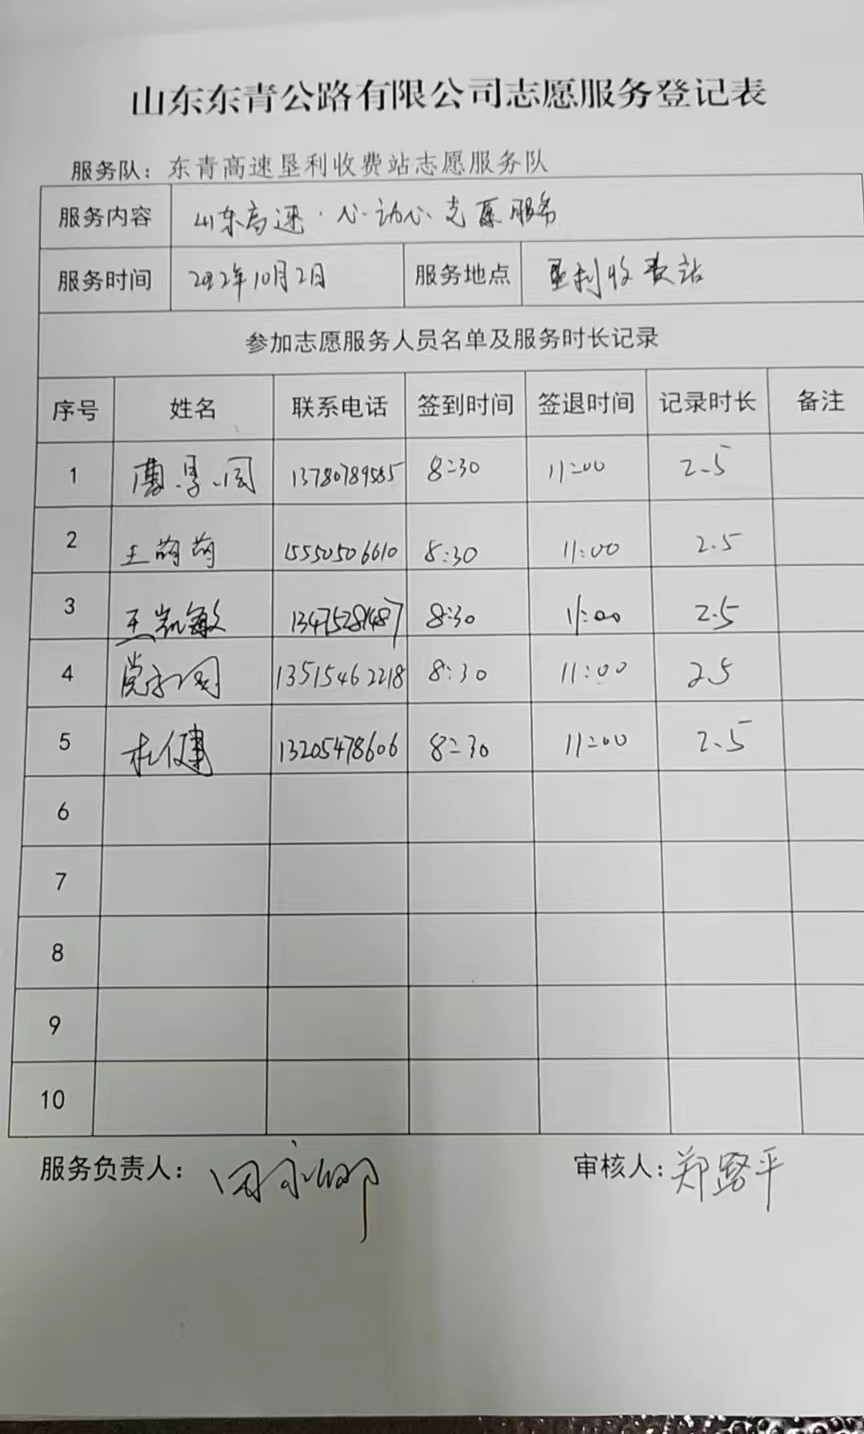 山东东青公路有限公司志愿服务登记表
服务队：东青高速垦利收费站志愿服务队
服务内容 山东高速·心动心志愿服务
服务时间 2022年10月2日 服务地点 垦利收费站
参加志愿服务人员名单及服务时长记录
序号 姓名 联系电话 签到时间 签退时间 记录时长 备注
1 13780789585 8:30 11:00 2.5
2 王萌萌 15550506610 8:30 11:00 2.5
3 王凯敏 13475281487 8:30 11:00 2.5
4 13515462218 8:30 11:00 2.5
5 杜健 13205478606 8:30 11:00 2.5
6
7
8
9
10
服务负责人： 审核人：郑路平